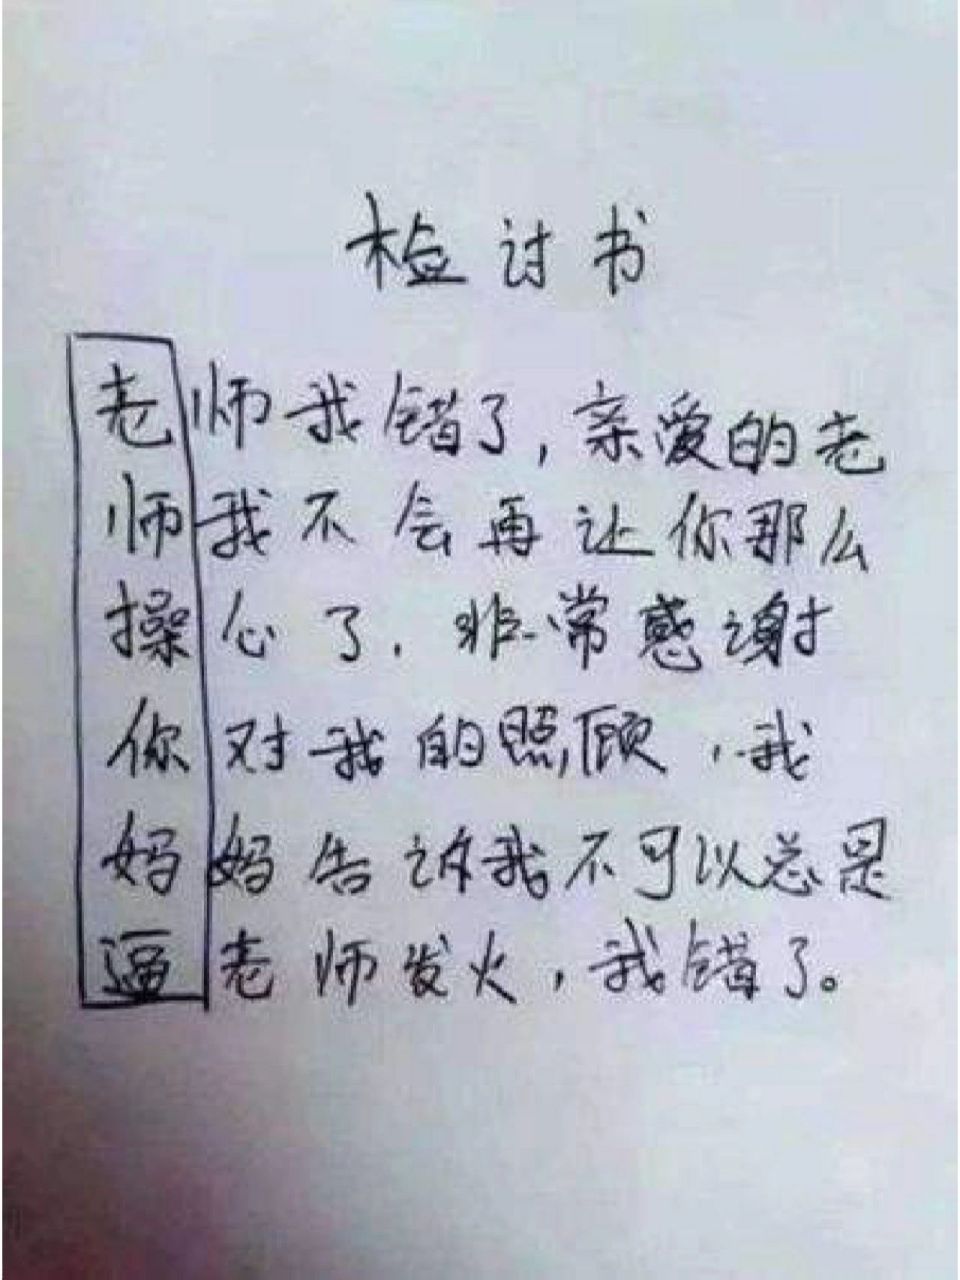 检讨书
老师我错了,亲爱的老
师我不会再让你那么
操心了.非常感谢
你对我的照顾,我
妈妈告诉我不可以总是
逼老师发火,我错了。